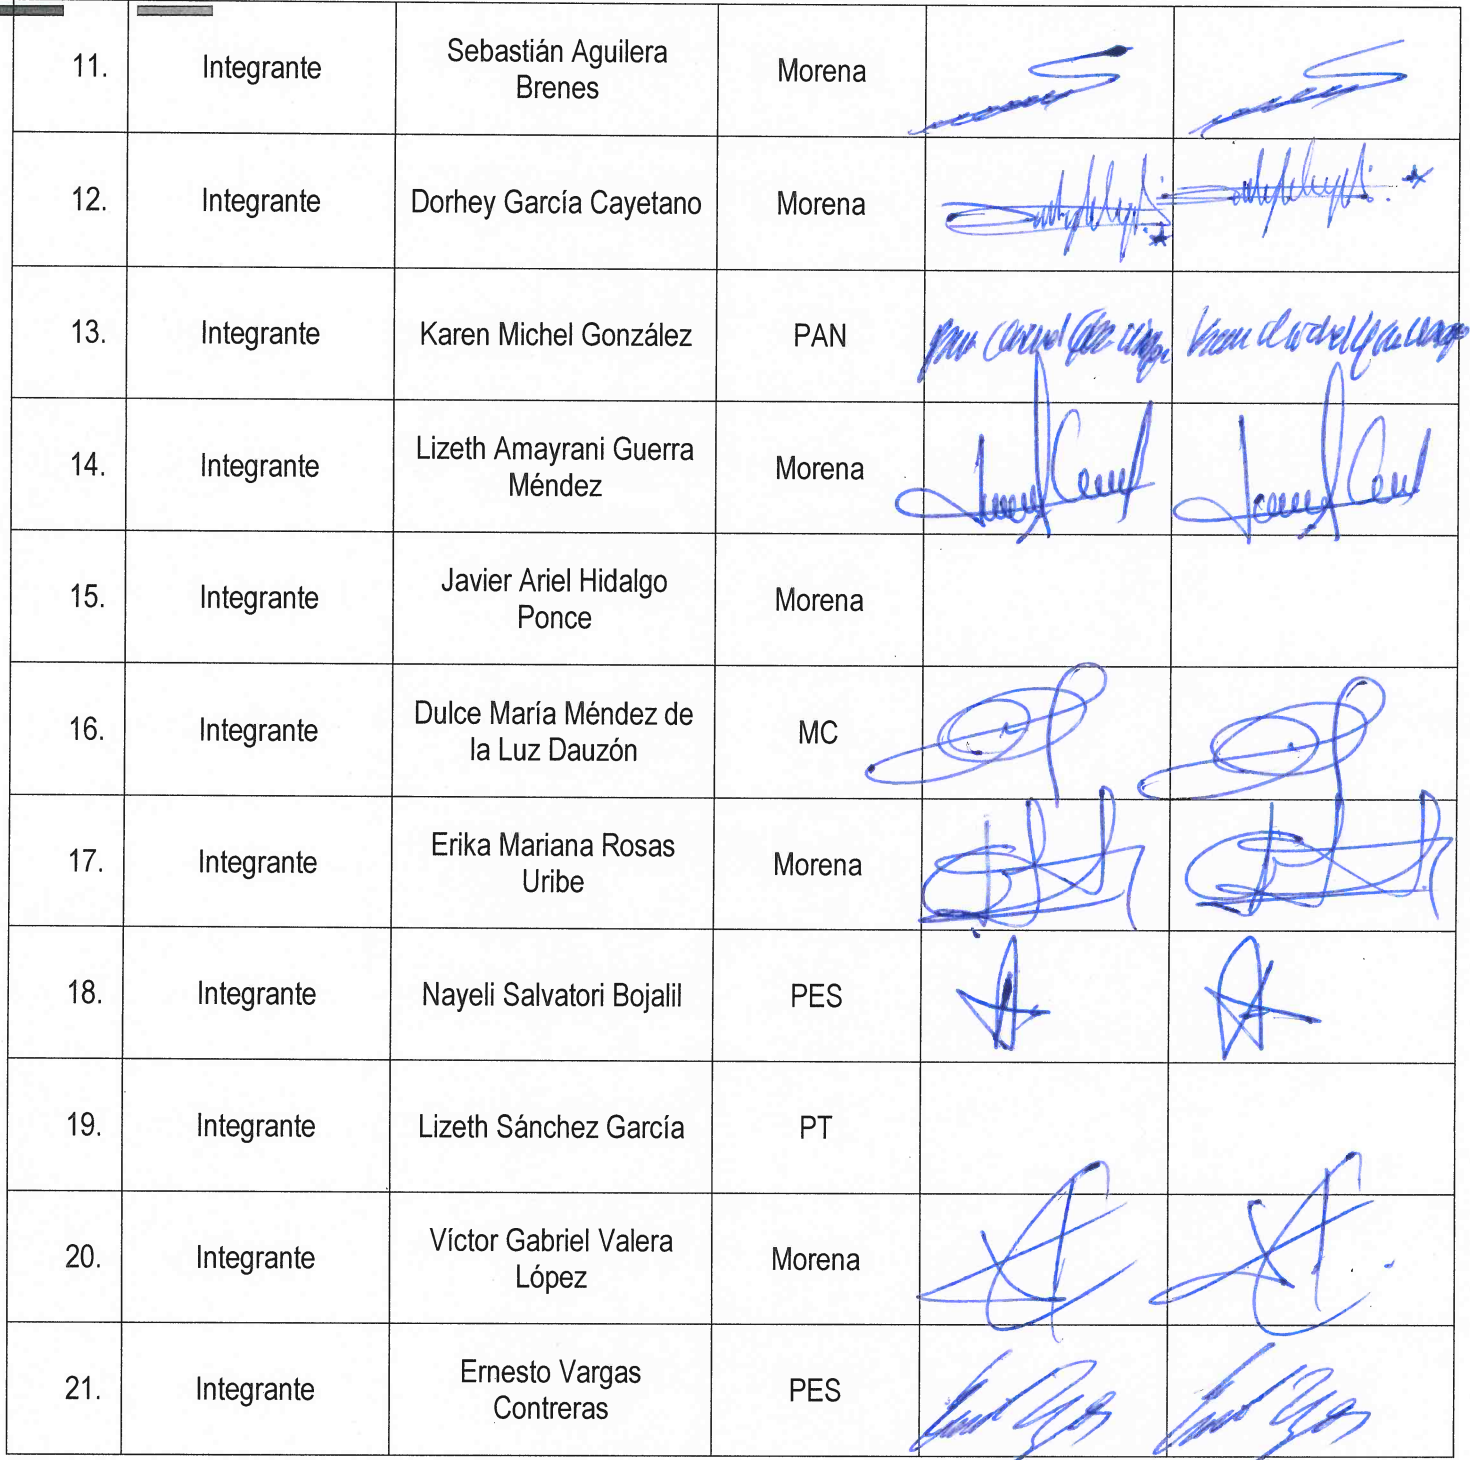 11. Integrante Sebastián Aguilera Morena
Brenes
12. Integrante Dorhey García Cayetano Morena
13. Integrante Karen Michel González PAN
14. Integrante Lizeth Amayrani Guerra Morena
Méndez
15. Integrante Javier Ariel Hidalgo Morena
Ponce
16. Integrante Dulce María Méndez de MC
la Luz Dauzón
17. Integrante Erika Mariana Rosas Morena
Uribe
18. Integrante Nayeli Salvatori Bojalil PES
19. Integrante Lizeth Sánchez García PT
20. Integrante Víctor Gabriel Valera Morena
López
21. Integrante Ernesto Vargas PES
Contreras